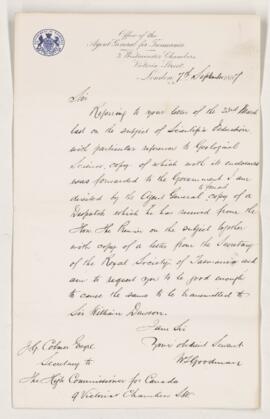 Office of the
Agent General for Tasmania
5 Westminster Chambers
Victoria Street
London, 7th September 1887
Sir
Referring to your letter of the 23rd March
last on the subject of Scientific Education
with particular reference to Geological
Science, copy of which with its enclosures
was forwarded to the Government I am
desired by the Agent General copy of a
Despatch which he has received from the
Hon. The Premier on the subject together
with copy of a letter from the Secretary
of the Royal Society of Tasmania and
am to request you to be good enough
to cause the same to be transmitted to
Sir William Dawson.
I am Sir
Your obedient Servant
J.G. Colmer Esqre
Secretary to
The High Commissioner for Canada
9 Victoria Chambers S.W.